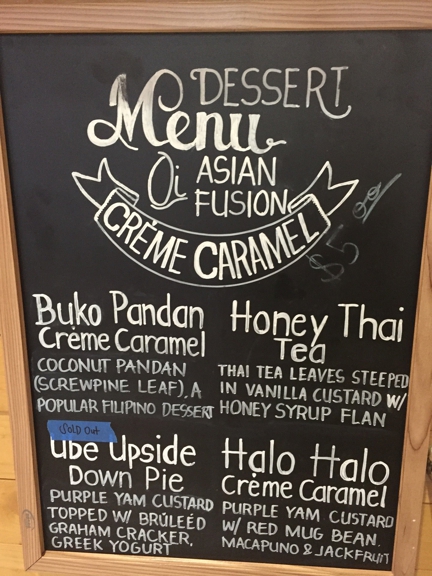 DESSERT
Menu
Oi ASIAN
FUSION
CRÈME CARAMEL
$5.00
Buko Pandan
Crème Caramel
COCONUT PANDAN
(SCREWPINE LEAF), A
POPULAR FILIPINO DESSERT
Honey Thai
Tea
THAI TEA LEAVES STEEPED
IN VANILLA CUSTARD W/
HONEY SYRUP FLAN
Sold Out
Ube Upside
Down Pie
PURPLE YAM CUSTARD
TOPPED W/ BRÚLEÉD
GRAHAM CRACKER,
GREEK YOGURT
Halo Halo
Crème Caramel
PURPLE YAM CUSTARD
W/ RED MUG BEAN.
MACAPUNO & JACKFRUIT